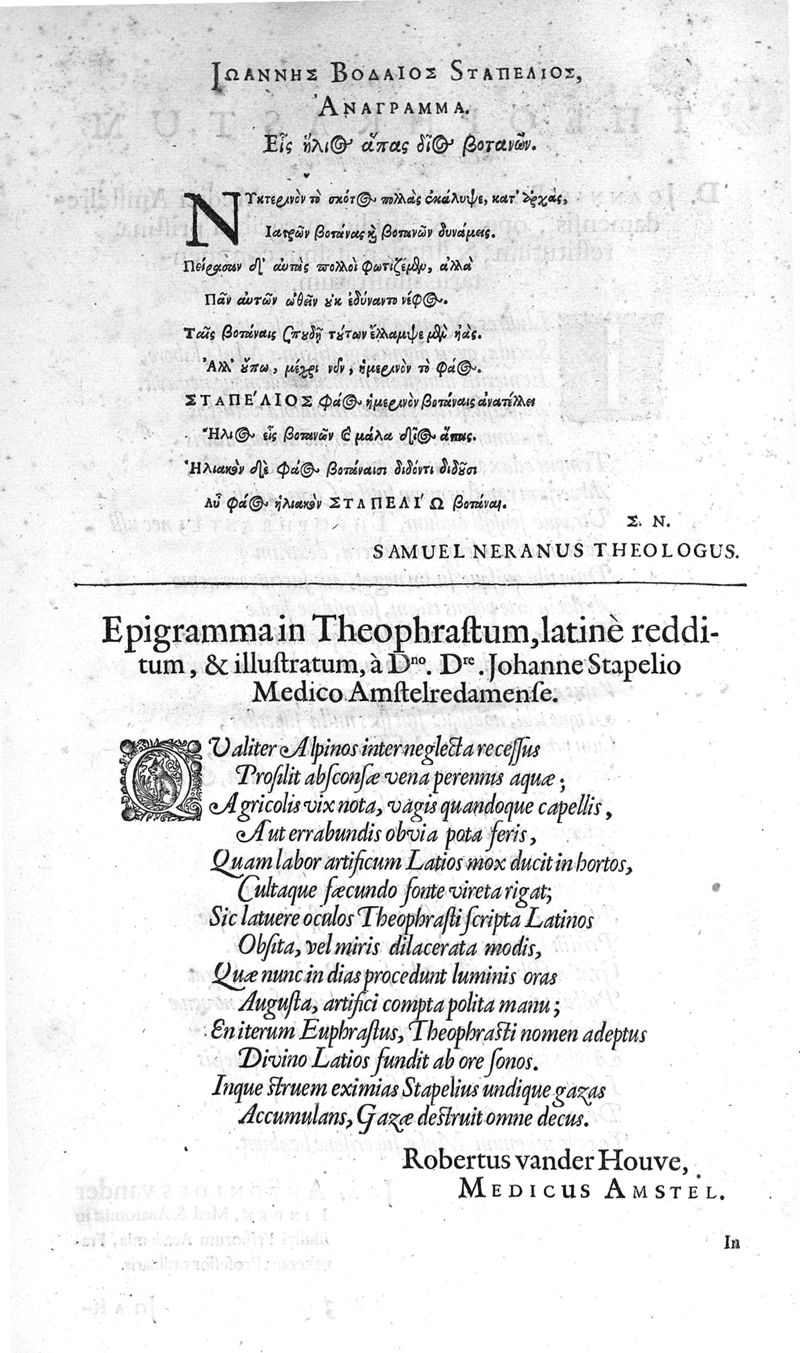 ΙΩΑΝΝΗΣ ΒΟΔΑΙΟΣ SΤΑΠΕΛΙΟΣ,
ἈΝΑΓΡΑΜΜΑ.
Εἷς ἥλιος ἅπας δῖος βοτανῶν.
ΝΥκτερινὸν τὸ σκότος πολλὰς ἐκάλυψε, κατ' ἀρχὰς,
Ἰατρῶν βοτάνας καὶ βοτανῶν δυνάμεις.
πολλοὶ φωτιζέμεν, ἀλλὰ
Πᾶν αὐτῶν ὠθεῖν οὐκ ἐδύναντο νέφος.
Ταῖς βοτάναις σπουδῇ τούτων ἔλλαμψε μὲν ἠώς.
Ἀλλ' οὔπω, μέχρι νῦν, ἡμερινὸν τὸ φάος.
ΣΤΑΠΕΛΙΟΣ φάος ἡμερινὸν βοτάναις ἀνατέλλει
Ἥλιος εἷς βοτανῶν καὶ μάλα δῖος ἅπας.
Ἡλιακὸν δὲ φάος βοτάναισι διδόντι διδοῦσι
Αὖ φάος ἡλιακὸν ΣΤΑΠΕΛΙ'Ω βοτάναι.
Σ. Ν.
SAMUEL NERANUS THEOLOGUS.
Epigramma in Theophraſtum, latinè reddi-
tum, & illuſtratum, à Dno. Dre. Johanne Stapelio
Medico Amſtelredamenſe.
QValiter Alpinos inter neglecta receſſus
Proſilit abſconſæ vena perennis aquæ;
Agricolis vix nota, vagis quandoque capellis,
Aut errabundis obvia pota feris,
Quam labor artificum Latios mox ducit in hortos,
Cultaque fæcundo fonte vireta rigat;
Sic latuere oculos Theophraſti ſcripta Latinos
Obſita, vel miris dilacerata modis,
Quæ nunc in dias procedunt luminis oras
Auguſta, artifici compta polita manu;
En iterum Euphraſtus, Theophraſti nomen adeptus
Divino Latios fundit ab ore ſonos.
Inque ſtruem eximias Stapelius undique gazas
Accumulans, Gazæ deſtruit omne decus.
Robertus vander Houve,
MEDICUS AMSTEL.
In